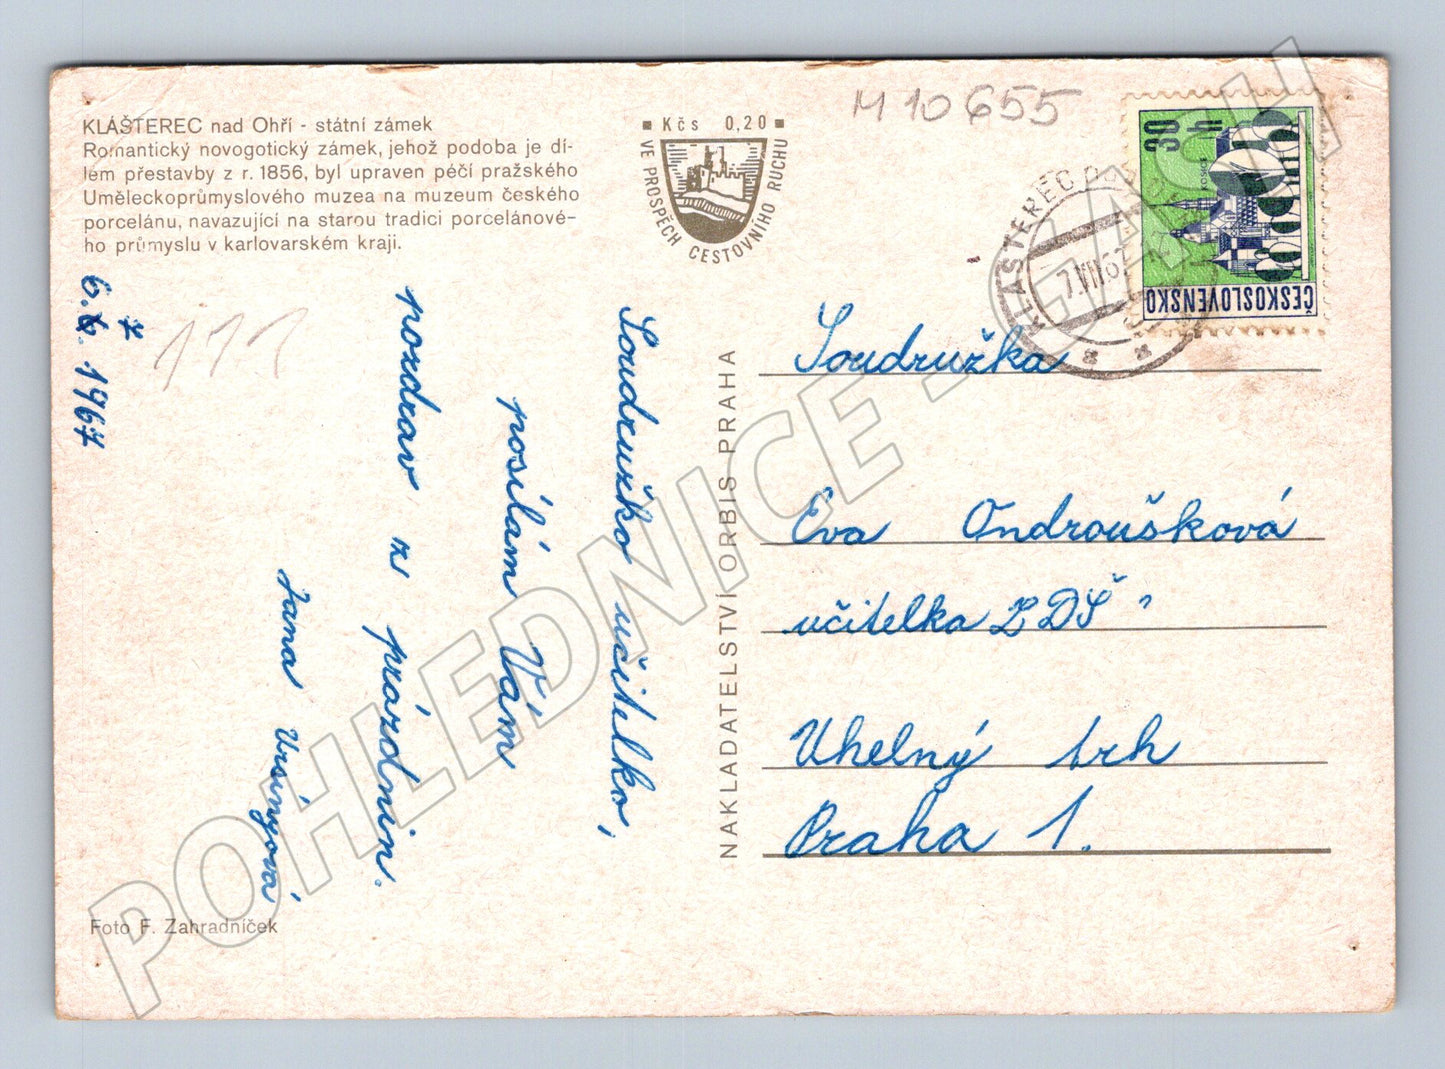 KLÁŠTEREC nad Ohří - státní zámek
Romantický novogotický zámek, jehož podoba je dí-
lem přestavby z r. 1856, byl upraven péčí pražského
Uměleckoprůmyslového muzea na muzeum českého
porcelánu, navazující na starou tradici porcelánové-
ho průmyslu v karlovarském kraji.
Kčs 0,20
VE PROSPĚCH CESTOVNÍHO RUCHU
M 10655
30 h
KOŠICE
ČESKOSLOVENSKO
KLÁŠTEREC
7.VII.67
6.7. 1967
111
Soudružko učitelko,
posílám Vám
pozdrav z prázdnin.
Jana Ursínyová
NAKLADATELSTVÍ ORBIS PRAHA
Soudružka
Eva Ondroušková
učitelka ZDŠ
Uhelný trh
Praha 1.
Foto F. Zahradníček
POHLEDNICE - HASH